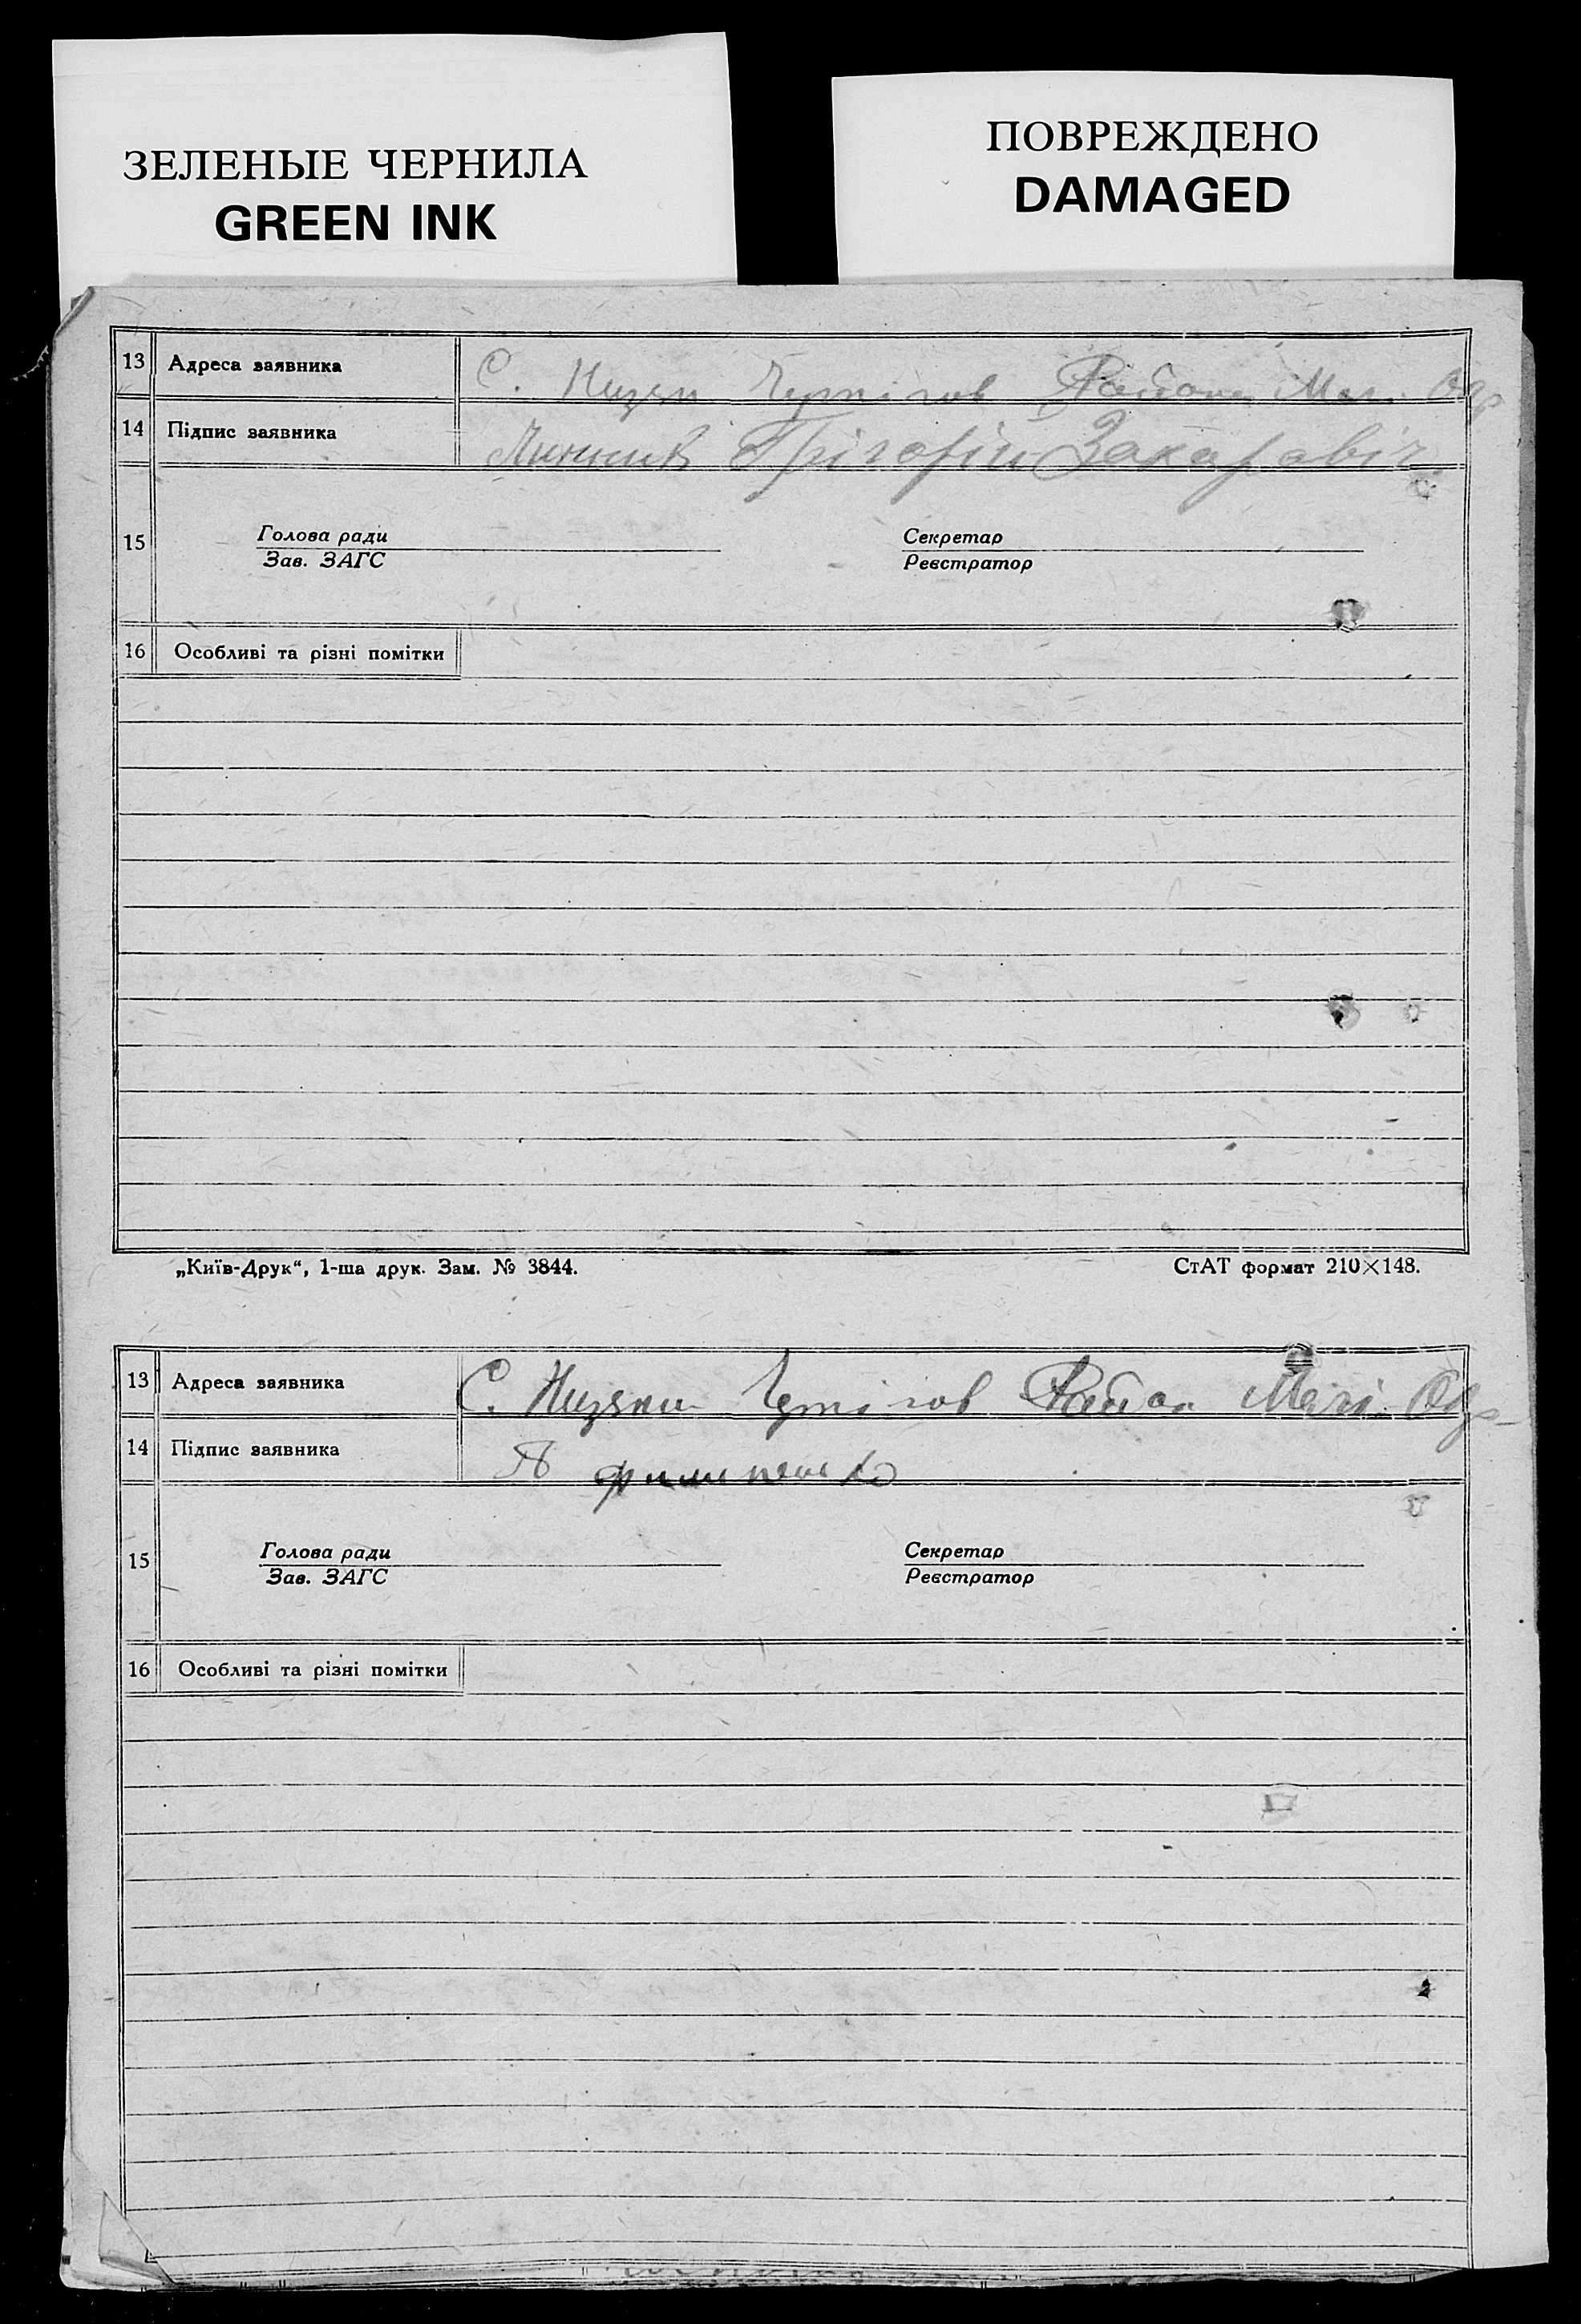 ЗЕЛЕНЫЕ ЧЕРНИЛА
GREEN INK
ПОВРЕЖДЕНО
DAMAGED
13 Адреса заявника С. Низяни Чернігов Район
14 Підпис заявника Грігорій Захаравіч
15 Голова ради Секретар
Зав. ЗАГС Реєстратор
16 Особливі та різні помітки
„Київ-Друк“, 1-ша друк. Зам. № 3844. СтАТ формат 210×148.
13 Адреса заявника С. Низяни Чернігов Район
14 Підпис заявника филипенко
15 Голова ради Секретар
Зав. ЗАГС Реєстратор
16 Особливі та різні помітки